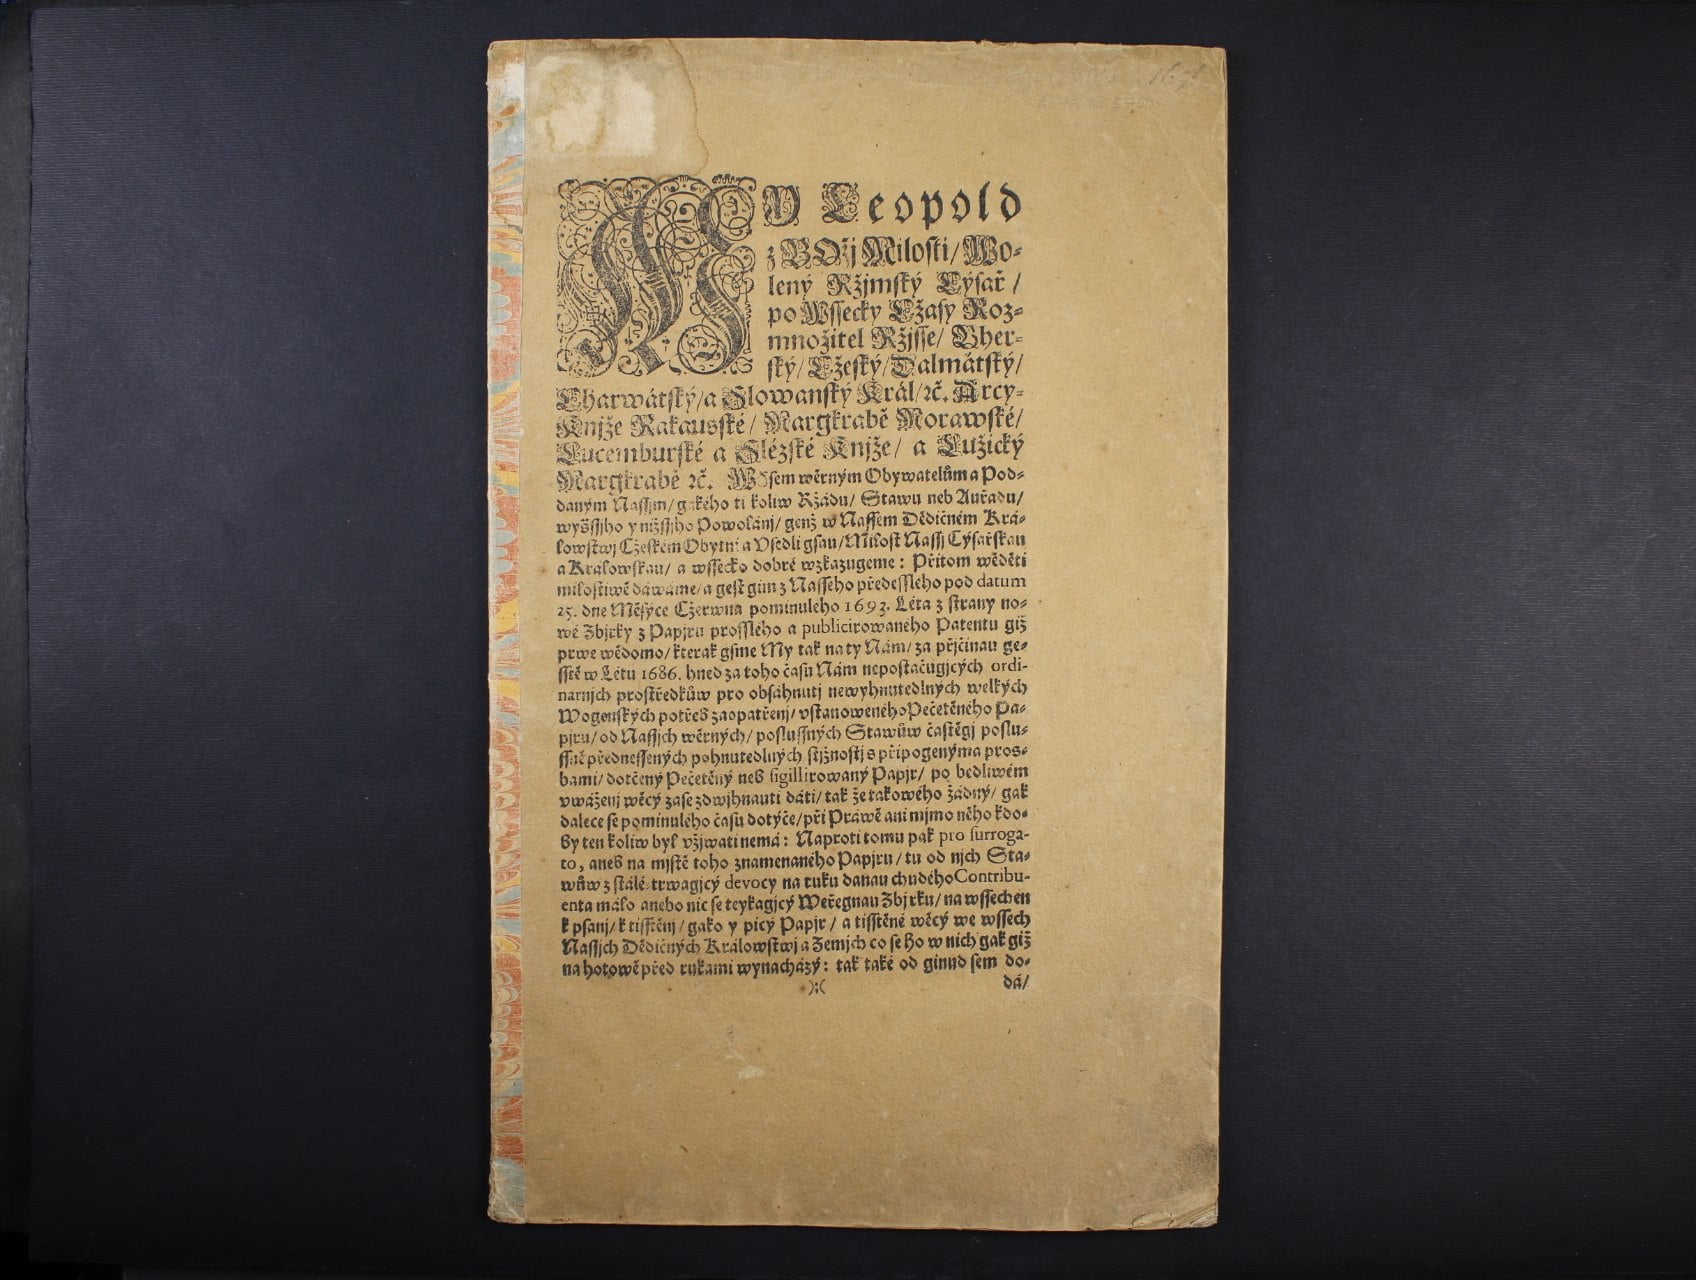 MY Leopold
z BOžj Milosti/ Wo-
lený Ržjmský Cýsař/
po Wssecky Cžasy Roz-
množitel Ržjsse/ Vher-
ský/ Cžeský/ Dalmátský/
Charwátský/ a Slowanský Král/ ꝛc̃. Arcy-
Knjže Rakauské/ Margkrabě Morawské/
Lucemburské a Slézské Knjže/ a Lužický
Margkrabě ꝛc̃. Wssem wěrným Obywatelům a Pod-
daným Nassim/ gakého ti koliw Ržádu/ Stawu neb Auřadu/
wyšssjho y nižssjho Powolánj/ genž w Nassem Dědičném Krá-
lowstwj Cžeském Obytni a Vsedli gsau/ Milost Nassj Cýsařskau
a Kralowskau/ a wssecko dobré wzkazugeme: Přitom wěděti
milostiwě dáwáme/ a gest gim z Nasseho předessleho pod datum
25. dne Měsýce Cžerwna pominuleho 1692. Léta z strany no-
wé Zbjrky z Papjru prossleho a publicirowaneho Patentu giž
prwe wědomo/ kterak gsme My tak na ty Nám/ za přjčinau ge-
sstě w Létu 1686. hned za toho času Nám nepostačugjcých ordi-
narnjch prostředkůw pro obsáhnutj newyhnutedlných welkých
Wogenských potřeb zaopatřenj/ vstanoweného Pečetěného Pa-
pjru/ od Nassjch wěrných/ poslussných Stawůw častěgj poslu-
ssně přednessených pohnutedlných stjžnostj s připogenýma pros-
bami/ dotčený Pečetěný neb sigillirowaný Papjr/ po bedliwém
vwáženj wěcý zase zdwjhnauti dáti/ tak že takowého žádný/ gak
dalece se pominulého času dotýče/ při Práwě ani mjmo něho kdo-
by ten koliw byl vžjwati nemá: Naproti tomu pak pro surroga-
to, aneb na mjstě toho znamenaného Papjru/ tu od njch Sta-
wůw z stálé-trwagjcý devocy na ruku danau chudého Contribu-
enta málo anebo nic se teykagjcý Weřegnau Zbjrku/ na wssechen
k psanj/ k tisstěnj/ gako y picý Papjr/ a tisstěné wěcý we wssech
Nassjch Dědičných Kralowstwj a Zemjch co se ho w nich gak giž
na hotowě před rukami wynacházý: tak také od ginud sem do-
):( dá/